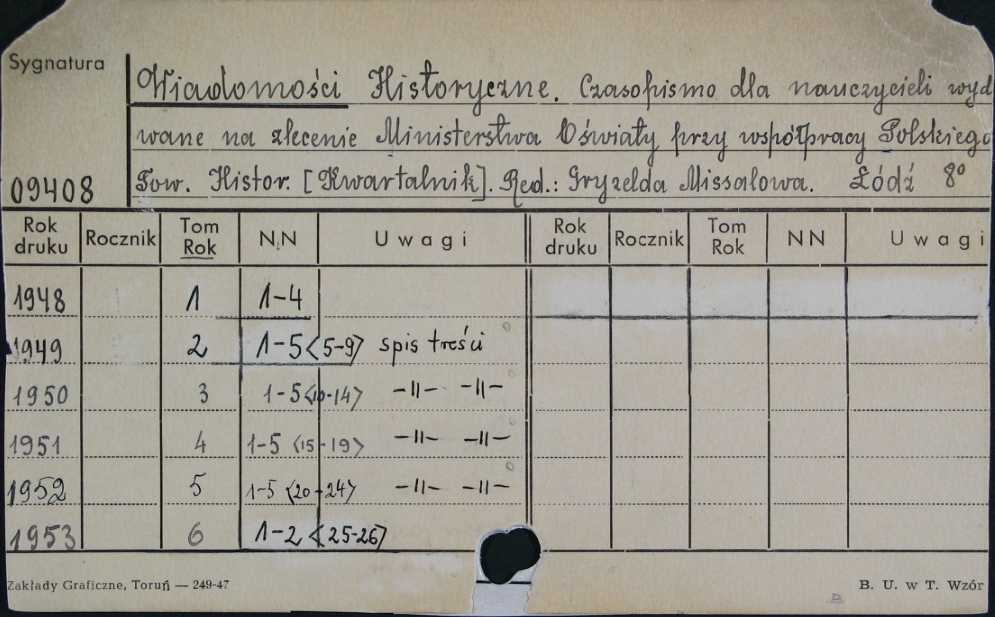 Sygnatura
Wiadomości Historyczne. Czasopismo dla nauczycieli wyd
wane na zlecenie Ministerstwa Oświaty przy współpracy Polskiego
09408 Tow. Histor. [Kwartalnik]. Red.: Gryzelda Missalowa. Łódź 8°
Rok druku Rocznik Tom Rok N.N Uwagi Rok druku Rocznik Tom Rok NN Uwagi
1948 1 1-4
1949 2 1-5<5-9> spis treści
1950 3 1-5<10-14> -"- -"-
1951 4 1-5 <15-19> -"- -"-
1952 5 1-5 <20-24> -"- -"-
1953 6 1-2 <25-26>
Zakłady Graficzne, Toruń — 249-47 B. U. w T. Wzór